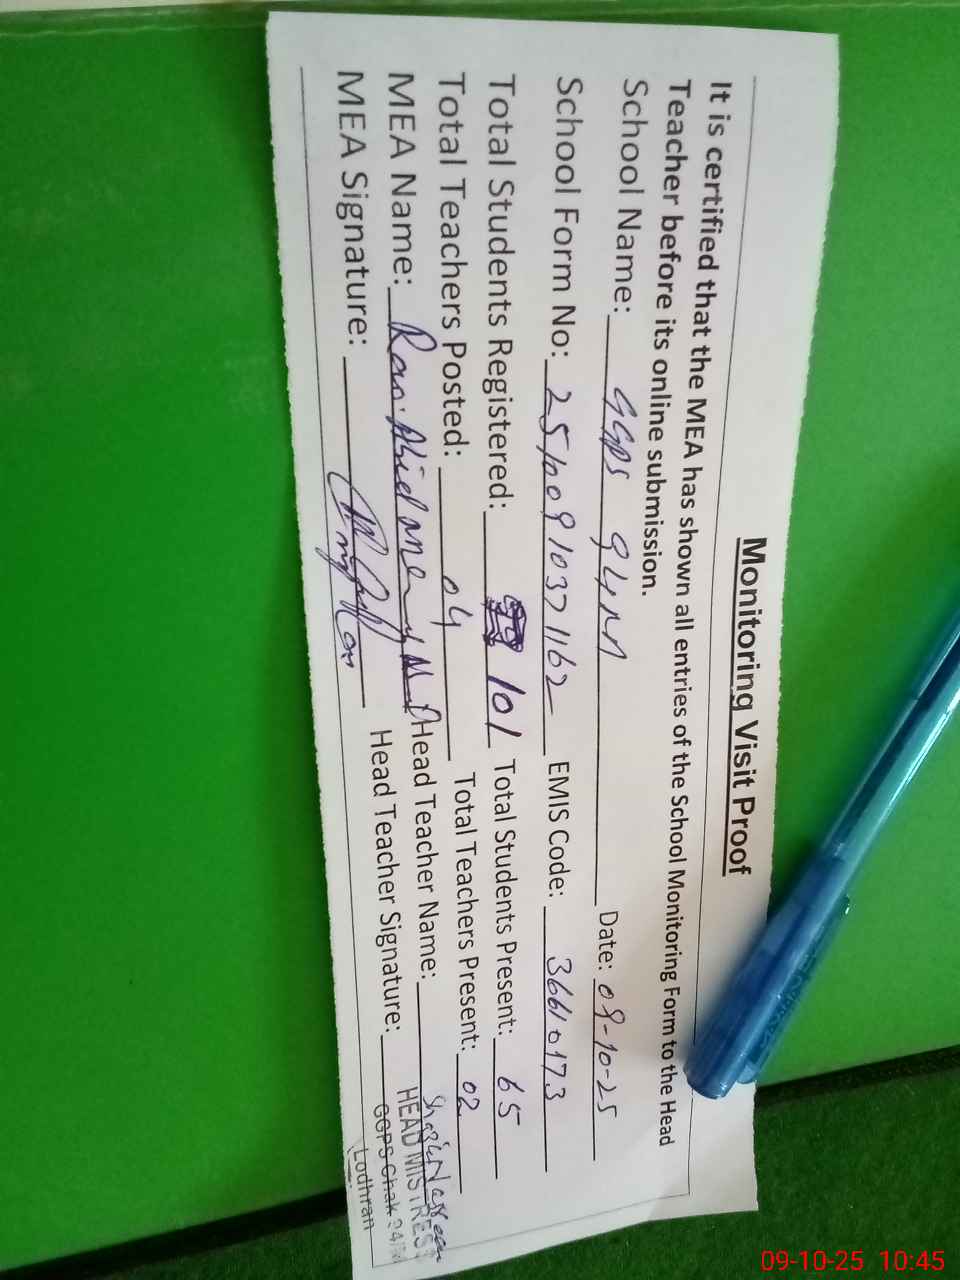 Monitoring Visit Proof
It is certified that the MEA has shown all entries of the School Monitoring Form to the Head
Teacher before its online submission.
School Name: GGPS 94M Date: 09-10-25
School Form No: 25100910371162 EMIS Code: 36610173
Total Students Registered: 101 Total Students Present: 65
Total Teachers Posted: 04 Total Teachers Present: 02
MEA Name: Rao Abid Head Teacher Name:
HEAD MISTRESS
MEA Signature: Head Teacher Signature:
GGPS Chak 94/M
Lodhran
09-10-25 10:45